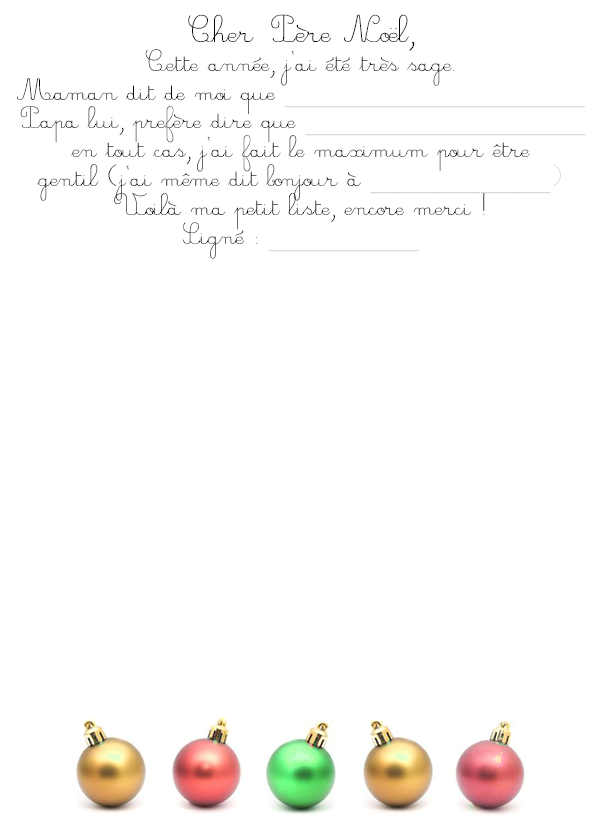 Cher Père Noël,
Cette année, j'ai été très sage.
Maman dit de moi que
Papa lui, prefère dire que
en tout cas, j'ai fait le maximum pour être
gentil (j'ai même dit bonjour à )
Voilà ma petit liste, encore merci !
Signé :